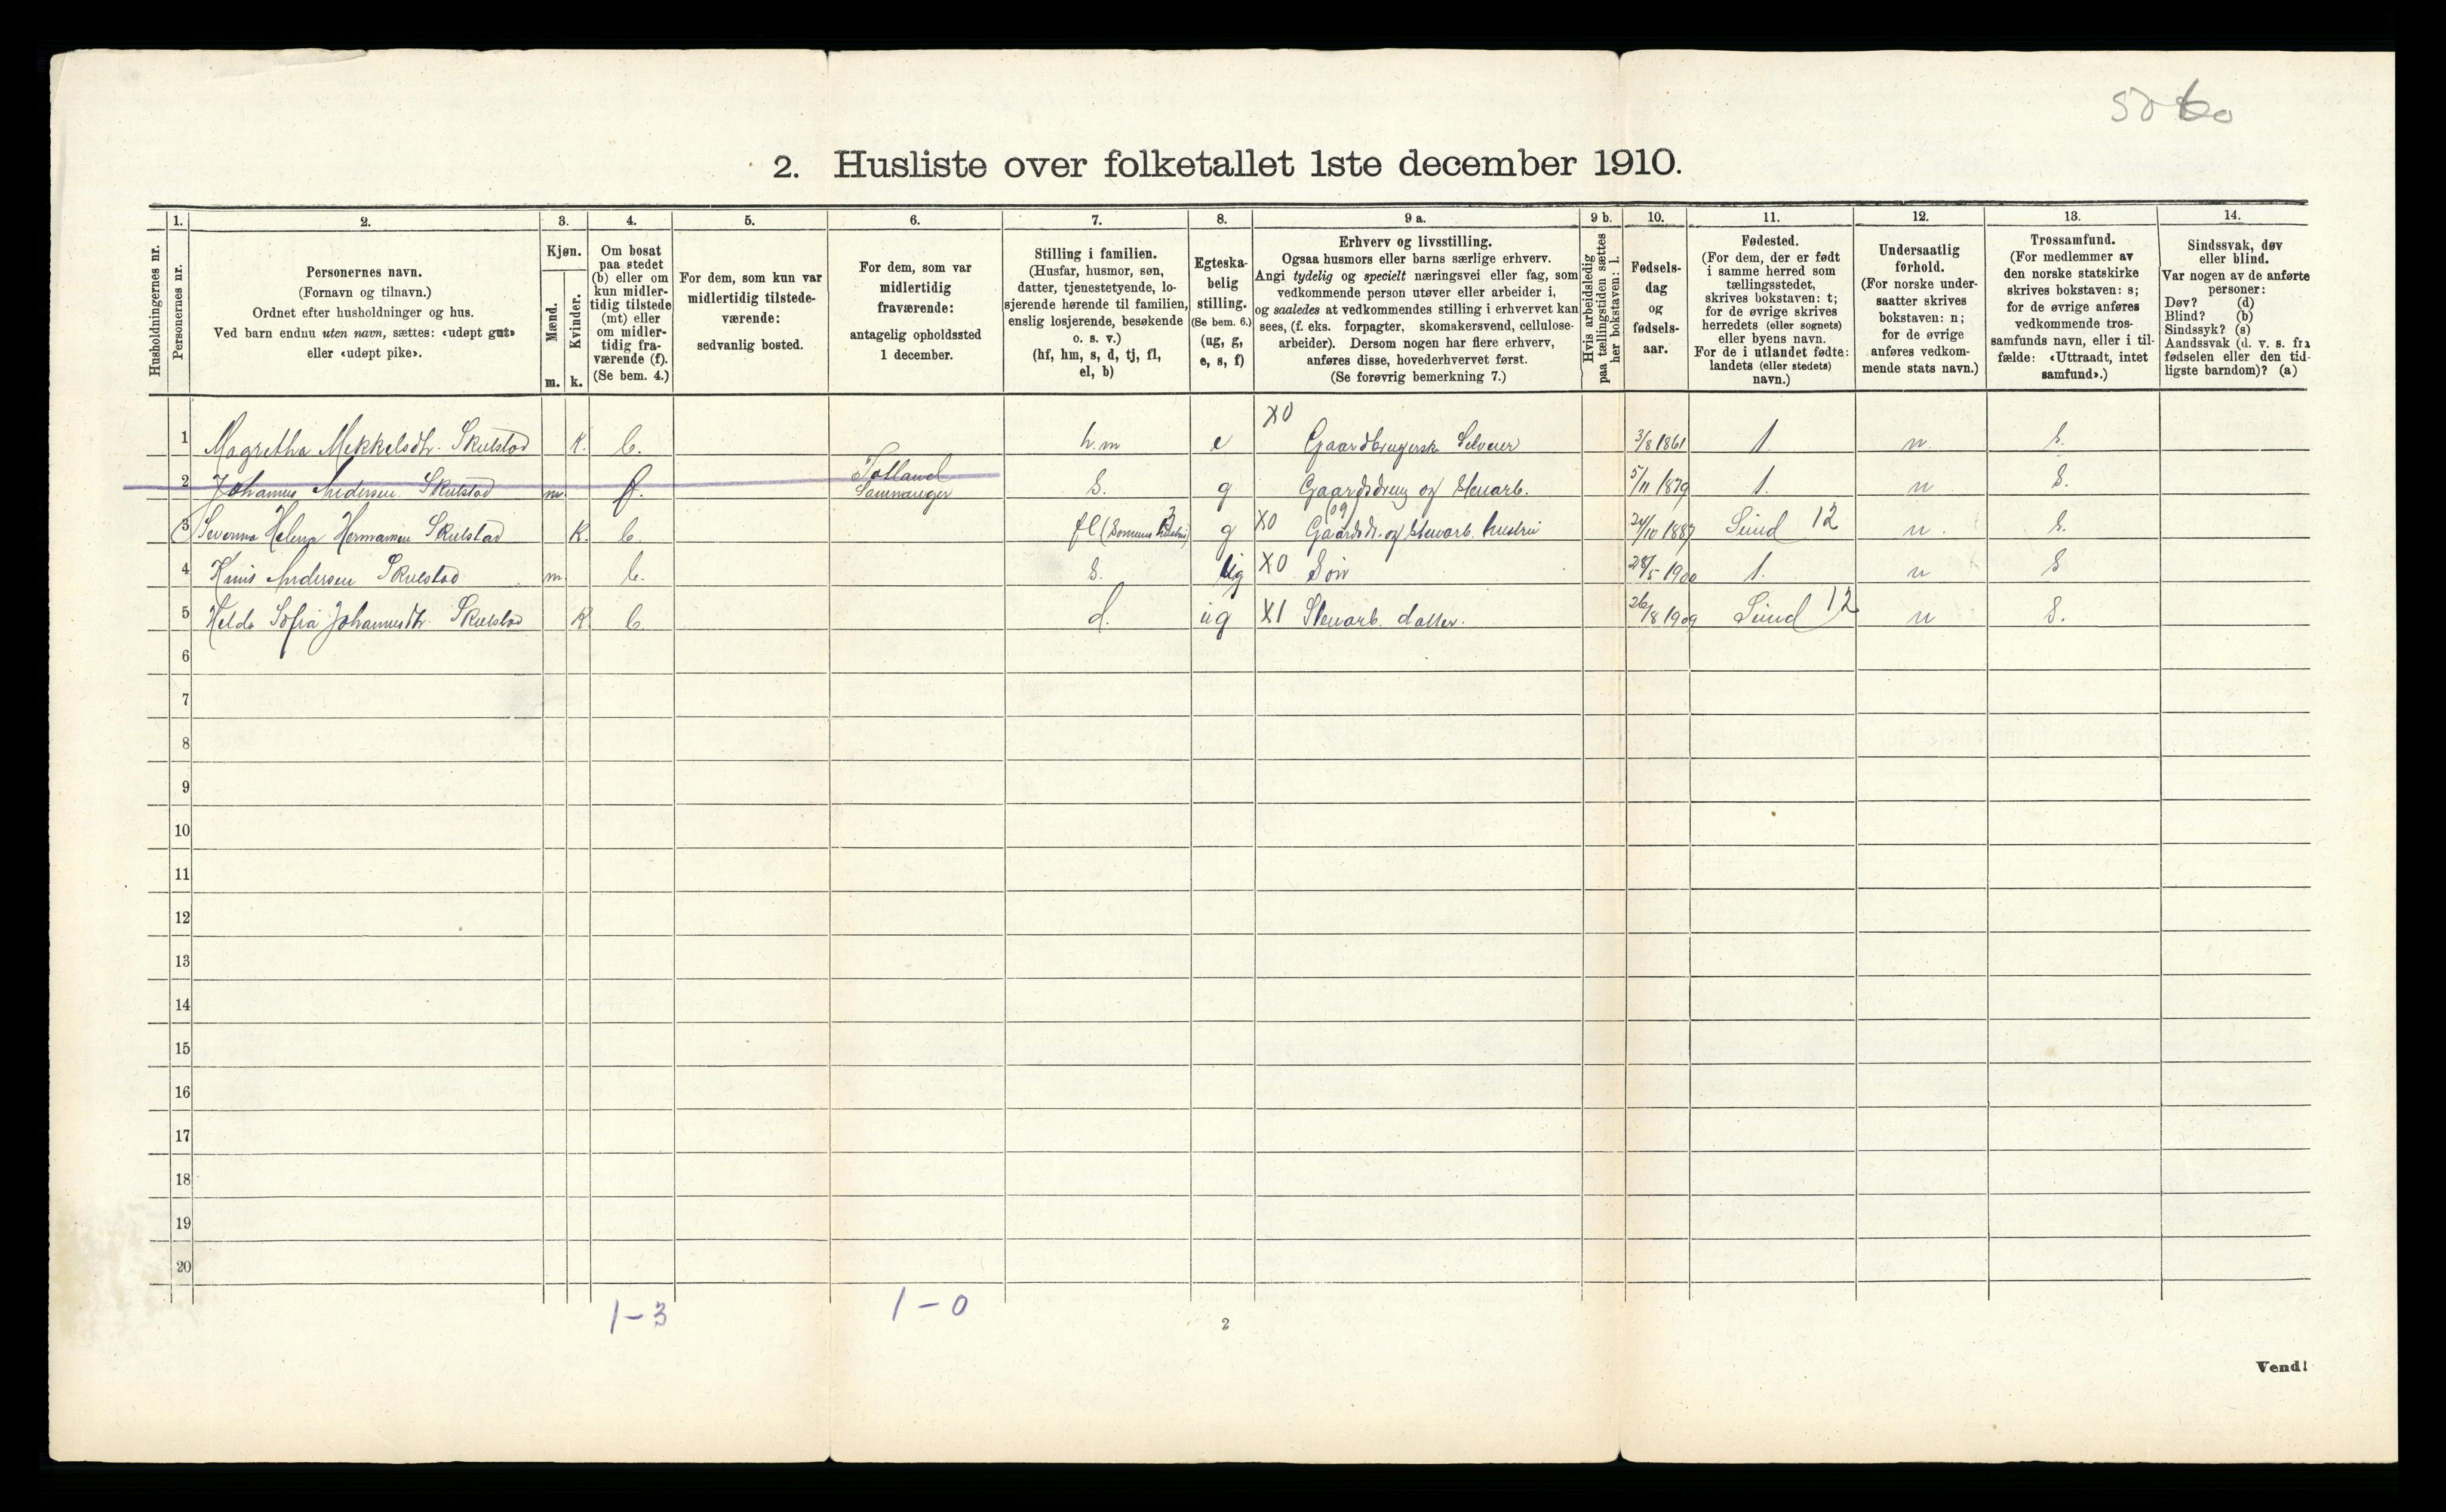 50 60
2. Husliste over folketallet 1ste december 1910.
Husholdningernes nr.
1. Personernes nr.
2. Personernes navn.
(Fornavn og tilnavn.)
Ordnet efter husholdninger og hus.
Ved barn endnu uten navn, sættes: «udøpt gut»
eller «udøpt pike».
3. Kjøn.
Mænd. m.
Kvinder. k.
4. Om bosat
paa stedet
(b) eller om
kun midler-
tidig tilstede
(mt) eller
om midler-
tidig fra-
værende (f).
(Se bem. 4.)
5. For dem, som kun var
midlertidig tilstede-
værende:
sedvanlig bosted.
6. For dem, som var
midlertidig
fraværende:
antagelig opholdssted
1 december.
7. Stilling i familien.
(Husfar, husmor, søn,
datter, tjenestetyende, lo-
sjerende hørende til familien,
enslig losjerende, besøkende
o. s. v.)
(hf, hm, s, d, tj, fl,
el, b)
8. Egteska-
belig
stilling.
(Se bem. 6.)
(ug, g,
e, s, f)
9 a. Erhverv og livsstilling.
Ogsaa husmors eller barns særlige erhverv.
Angi tydelig og specielt næringsvei eller fag, som
vedkommende person utøver eller arbeider i,
og saaledes at vedkommendes stilling i erhvervet kan
sees, (f. eks. forpagter, skomakersvend, cellulose-
arbeider). Dersom nogen har flere erhverv,
anføres disse, hovederhvervet først.
(Se forøvrig bemerkning 7.)
9 b. Hvis arbeidsledig
paa tællingstiden sættes
her bokstaven: l.
10. Fødsels-
dag
og
fødsels-
aar.
11. Fødested.
(For dem, der er født
i samme herred som
tællingsstedet,
skrives bokstaven: t;
for de øvrige skrives
herredets (eller sognets)
eller byens navn.
For de i utlandet fødte:
landets (eller stedets)
navn.)
12. Undersaatlig
forhold.
(For norske under-
saatter skrives
bokstaven: n;
for de øvrige
anføres vedkom-
mende stats navn.)
13. Trossamfund.
(For medlemmer av
den norske statskirke
skrives bokstaven: s;
for de øvrige anføres
vedkommende tros-
samfunds navn, eller i til-
fælde: «Uttraadt, intet
samfund».)
14. Sindssvak, døv
eller blind.
Var nogen av de anførte
personer:
Døv? (d)
Blind? (b)
Sindssyk? (s)
Aandssvak (d. v. s. fra
fødselen eller den tid-
ligste barndom)? (a)
1 Magretha Mekkelsdtr. Skulstad K. b. h.m e X0 Gaardbrugersk Selveier 3/8 1861 t. n. s.
2 Johannes Andersen Skulstad m. f. Tolland Samnanger s. g Gaardsdreng og Stenarb. 5/11 1879 t. n s.
3 Severina Helena Hermansen Skulstad K. b. fl (Sonnens Hustru) g X0 Gaardsdr. og Stenarb. hustru 24/10 1887 Sund 12 n. s.
4 Knut Andersen Skulstad m. b. s. ug X0 Søn 28/5 1900 t. n s
5 Helda Sofia Johannesdtr. Skulstad K b. d. ug X1 Stenarb. datter. 26/8 1909 Sund 12 n s.
6
7
8
9
10
11
12
13
14
15
16
17
18
19
20
1-3 1-0
2
Vend!